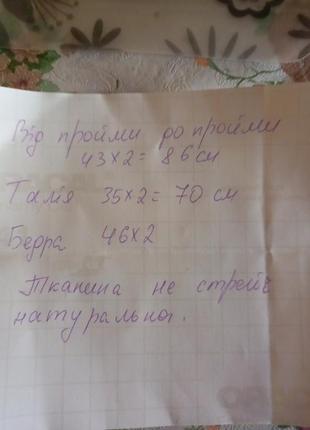 Від пройми до пройми
43×2= 86см
Талія 35×2= 70 см
Бедра 46×2
Тканина не стрейч
натуральна.